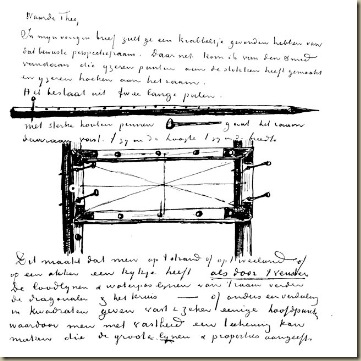 Waarde Theo,
In mijn vorigen brief zult ge een krabbeltje gevonden hebben van
dat bewuste perspectiefraam. Daar net kom ik van den smid
vandaan die ijzeren punten aan de stokken heeft gemaakt
en ijzeren hoeken aan het raam.
Het bestaat uit twee lange palen.
met sterke houten pennen gaat het raam
daaraan vast. 't zij in de hoogte 't zij in de breedt.
Dit maakt dat men op 't strand of op 't weiland of
op een akker een kijkje heeft als door 't venster
De loodlijnen & waterpas lijnen van 't raam verder
de diagonalen & het kruis — of anders een verdeling
in kwadraten geven vast & zeker eenige hoofdpunten
waardoor men met vastheid een teekening kan
maken die de groote lijnen & proporties aangeeft